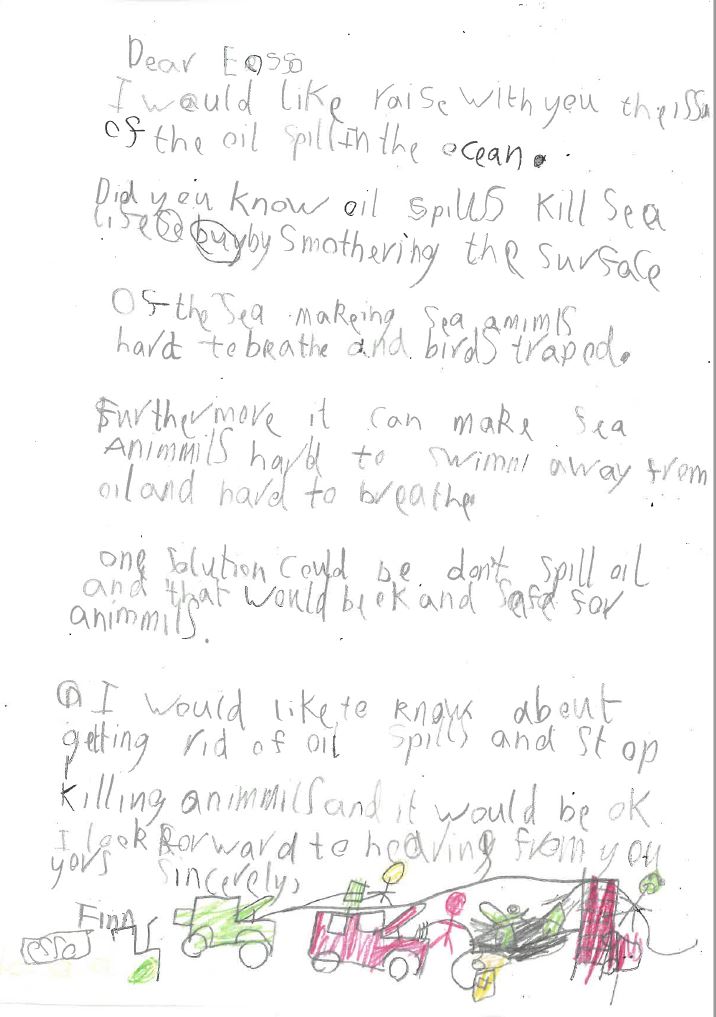 Dear Eosso
I would like raise with you the issu
of the oil spill in the ocean.
Did you know oil spills kill Sea
life se buy by Smothering the surface
Of the Sea makeing Sea amimls
hard to breathe and birds traped.
Furthermore it can make Sea
Animmils hard to swimm away from
oil and hard to breathe
one solution could be don't spill oil
and that would be ok and safe for
animmils.
I would like to know about
getting rid of oil spills and stop
killing animmils and it would be ok
I look forward to hearing from you
yors sincerely,
Finn
esso